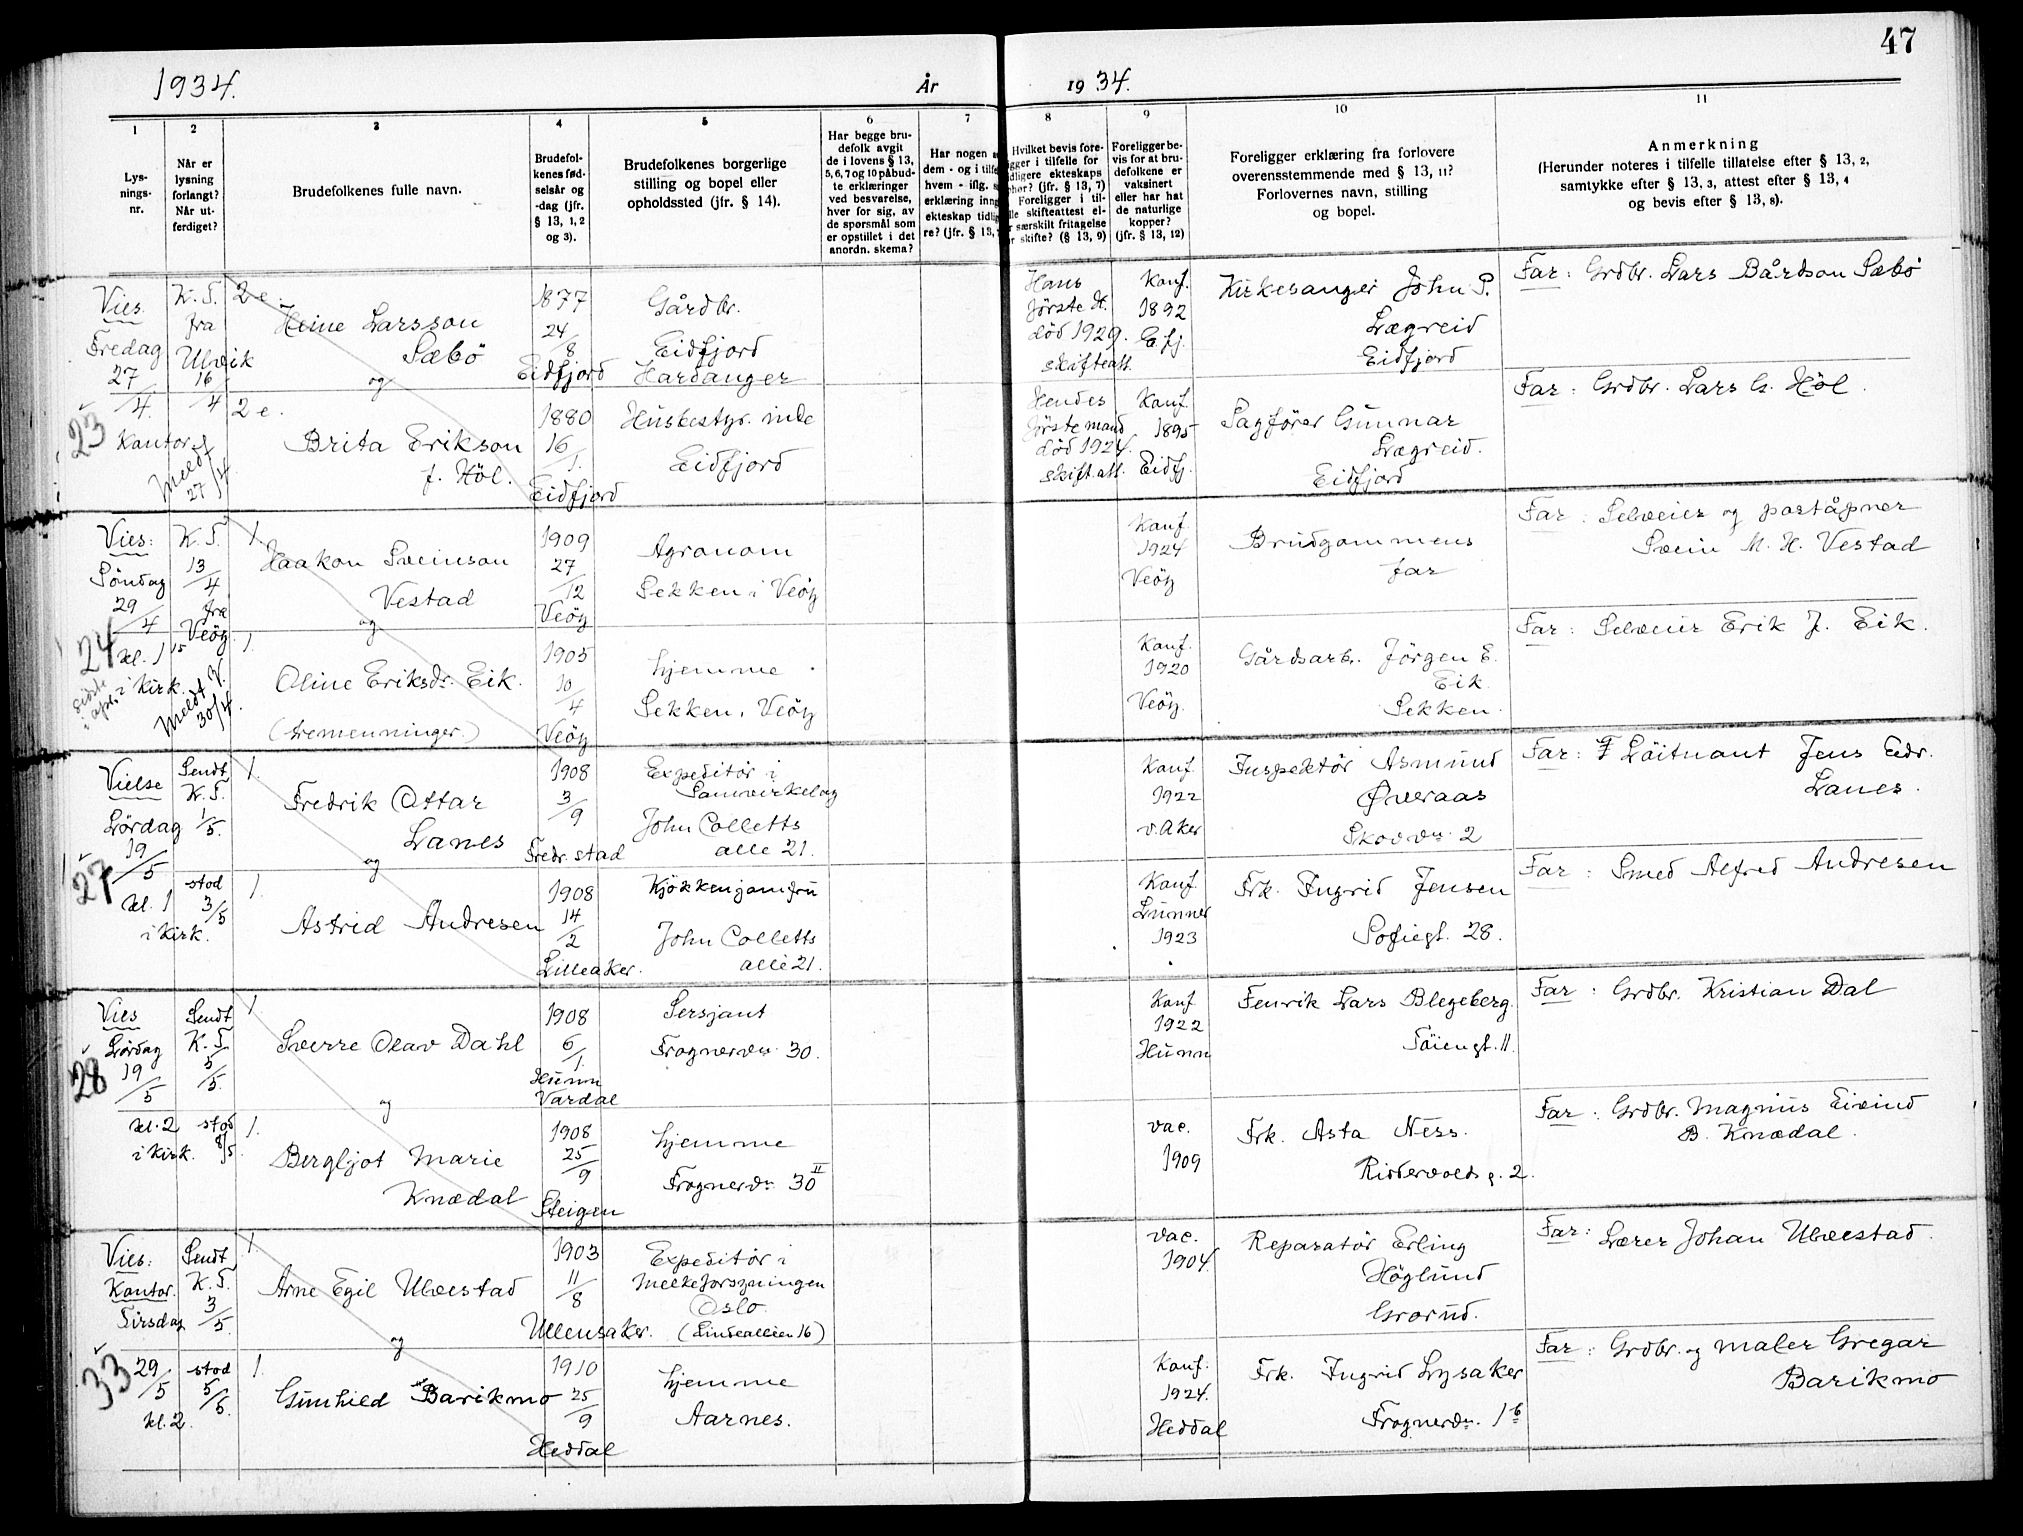 47
1934.
År
1934.
1
2
3
4
5
6
7
8
9
10
11
Lys-
nings-
nr.
Når er
lysning
forlangt?
Når ut-
ferdiget?
Brudefolkenes fulle navn.
Brudefol-
kenes fød-
selsår og
-dag (jfr.
§ 13, 1, 2
og 3).
Brudefolkenes borgerlige
stilling og bopel eller
opholdssted (jfr. § 14).
Har begge bru-
defolk avgit
de i lovens § 13,
5, 6, 7 og 10 påbud-
te erklæringer
ved besvarelse,
hver for sig, av
de spørsmål som
er opstillet i det
anordn. skema?
Har nogen a
dem - og i tilfe
hvem - iflg. s
erklæring inng
ekteskap tidlig
re? (jfr. § 13,
Hvilket bevis fore-
igger i tilfelle for
idligere ekteskaps
phør? (jfr. § 13, 7)
Foreligger i til-
lle skifteattest el-
r særskilt fritagelse
r skifte? (§ 13, 9)
Foreligger be-
vis for at bru-
defolkene er
vaksinert
eller har hat
de naturlige
kopper?
(jfr. § 13, 12)
Foreligger erklæring fra forlovere
overensstemmende med § 13, 11?
Forlovernes navn, stilling
og bopel.
Anmerkning
(Herunder noteres i tilfelle tillatelse efter § 13, 2,
samtykke efter § 13, 3, attest efter § 13, 4
og bevis efter § 13, 8).
23
Vies
Fredag
27/4.
Kontoret
Meldt
27/4
K. T.
fra
Ulvik
16/4
2 e.
Heine Larsson
Sæbö
1877
24/8
Eidfjord
Gårdbr.
Eidfjord
Hardanger
Hans
förste H.
död 1929.
skifteatt.
Konf.
1892
Eifj.
Kirkesanger John P.
Lægreid
Eidfjord
Far: Grdbr. Lars Bårdson Sæbö
og
2 e.
Brita Erikson
f. Höl.
1880
16/1.
Eidfjord
Husbestyr. inde
Eidfjord
Hendes
förste mand
död 1924.
skift.att.
Konf.
1895
Eidfj.
Sagfører Gunnar
Lægreid.
Eidfjord
Far: Grdbr. Lars G. Höl.
24
Vies:
Söndag
29/4
kl. 1 15
i Kirk.
Meldt V.
30/4.
K. T.
13/4
fra
Veöy.
1.
Haakon Sveinson
Vestad
1909
27/12
Veöy
Agronom
Sekken i Veöy
Konf.
1924
Veöy
Brudgommens
far
Far: Selveier og poståpner
Svein M. H. Vestad
og
1.
Oline Eriksdr. Eik.
(tremenninger.)
1905
10/4
Veöy
hjemme
Sekken, Veöy
Konf.
1920
Veöy.
Gårdsarb. Jörgen E.
Eik.
Sekken.
Far: Selveier Erik J. Eik.
27
Vielse
Lördag
19/5
kl. 1
i Kirk.
Sendt
K. T.
1/5.
stod
3/5
1.
Fredrik Ottar
Lanes
1908
3/9
Fredr.stad
Expeditör i
Samvirkelag
John Colletts
alle 21.
Konf.
1922
v. Aker
Inspektör Asmund
Øveraas
Skovvn. 2
Far: Löitnant Jens Edv.
Lanes.
og
1.
Astrid Andresen
1908
14/2
Lilleaker.
Kjökkenjomfru
John Colletts
alle 21.
Konf.
Lunner
1923
Frk. Ingrid Jensen
Sofiegt. 28.
Far: Smed Alfred Andresen
28
Vies
Lördag
19/5
kl. 2
i Kirk.
Sendt
K. T.
5/5.
stod
8/5.
1.
Sverre Olav Dahl
1908
6/1.
Hunn
Vardal
Sersjant
Frognervn. 30.
Konf.
1922
Hunn
Fenrik Lars Blegeberg
Töiengt. 11.
Far: Grdbr. Kristian Dal
og
1.
Bergljot Marie
Knædal
1908
25/9
Steigen
hjemme
Frognervn. 30 II
vac.
1909
Frk. Asta Ness.
Riddervolds g. 2.
Far: Grdbr. Magnus Eivind
B. Knædal.
33
Vies:
Kontor.
Tirsdag
29/5
kl. 2.
Sendt
K. T.
3/5.
stod
5/6.
1.
Arne Egil Ulvestad
1903
11/8
Ullensaker.
Expeditör i
Melkeforsyningen
Oslo.
(Lindealleen 16)
vac.
1904.
Reparatör Erling
Höglund
Grorud.
Far: Lærer Johan Ulvestad.
og
1.
Gunhild Barikmo
1910
25/9
Heddal
hjemme
Aarnes.
Konf.
1924.
Heddal
Frk. Ingrid Lysaker
Frognervn. 1 b
Far: Grdbr. og maler Gregar
Barikmo